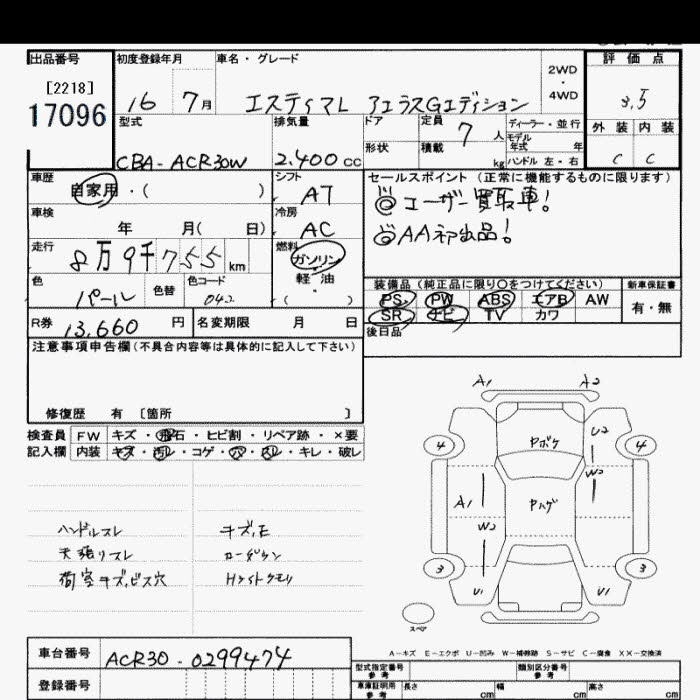 出品番号 初度登録年月 車名・グレード 2WD・4WD 評価点
[2218]
17096 16 7月 エスティマL アエラスGエディション 3.5
型式 排気量 ドア 定員 7人 ディーラー・並行 外装 内装
モデル年式 年
形状 積載 kg ハンドル 左・右
CBA-ACR30W 2.400cc C C
車歴 シフト セールスポイント(正常に機能するものに限ります)
自家用・( ) AT ◎ユーザー買取車!
車検 冷房
年 月( 日) AC ◎AA初出品!
走行 燃料
8万9千755km ガソリン
軽・油
色 色替 色コード 装備品(純正品に限り○をつけてください) 新車保証書
パール 042 ( ) PS PW ABS エアB AW 有・無
R券 13,660円 名変期限 月 日 SR ナビ TV カワ
後日品
注意事項申告欄(不具合内容等は具体的に記入して下さい)
修復歴 有 〔箇所 〕
検査員 FW キズ・飛石・ヒビ割・リペア跡・×要
記入欄 内装 キズ・汚レ・コゲ・穴・スレ・キレ・破レ
A1 A2
4 Pボケ U2 4
W2
A1 Pハゲ
W2
3 U1 U1 3
スペア
ハンドルスレ キズ,E
天張リスレ ローダウン
荷室キズ,ビス穴 Hライトクモリ
A-キズ E-エクボ U-凹み W-補修跡 S-サビ C-腐食 XX-交換済
車台番号 ACR30-0299474
型式指定番号 参考 類別区分番号 参考
登録番号 車庫証明用 参考 長さ cm 幅 cm 高さ cm